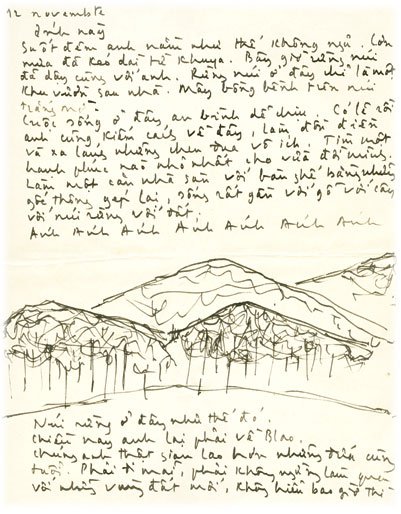 12 novembre
Ánh này
Suốt đêm anh nằm như thế không ngủ. Cơn
mưa đã kéo dài từ khuya. Bây giờ rừng núi
đã dậy cùng với anh. Rừng núi ở đây chỉ là một
khu vườn sau nhà. Mây bồng bềnh trên núi
Cuộc sống ở đây an bình dễ chịu. Có lẽ rồi
anh cũng kiếm cách về đây, làm đồn điền
và xa lánh những chen đua vô ích. Tìm một
hạnh phúc nào nhỏ nhất cho vừa đời mình.
Làm một căn nhà sàn với bàn ghế bằng những
gốc thông gộp lại, sống rất gần với gỗ với cây
với núi rừng với đất.
Ánh Ánh Ánh Ánh Ánh Ánh Ánh
Núi rừng ở đây như thế đó.
Chiều nay anh lại phải về Blao.
Chúng anh thật gian lao hơn những đứa cùng
tuổi. Phải đi mãi, phải không ngừng làm quen
với những vùng đất mới, không hiểu bao giờ thì